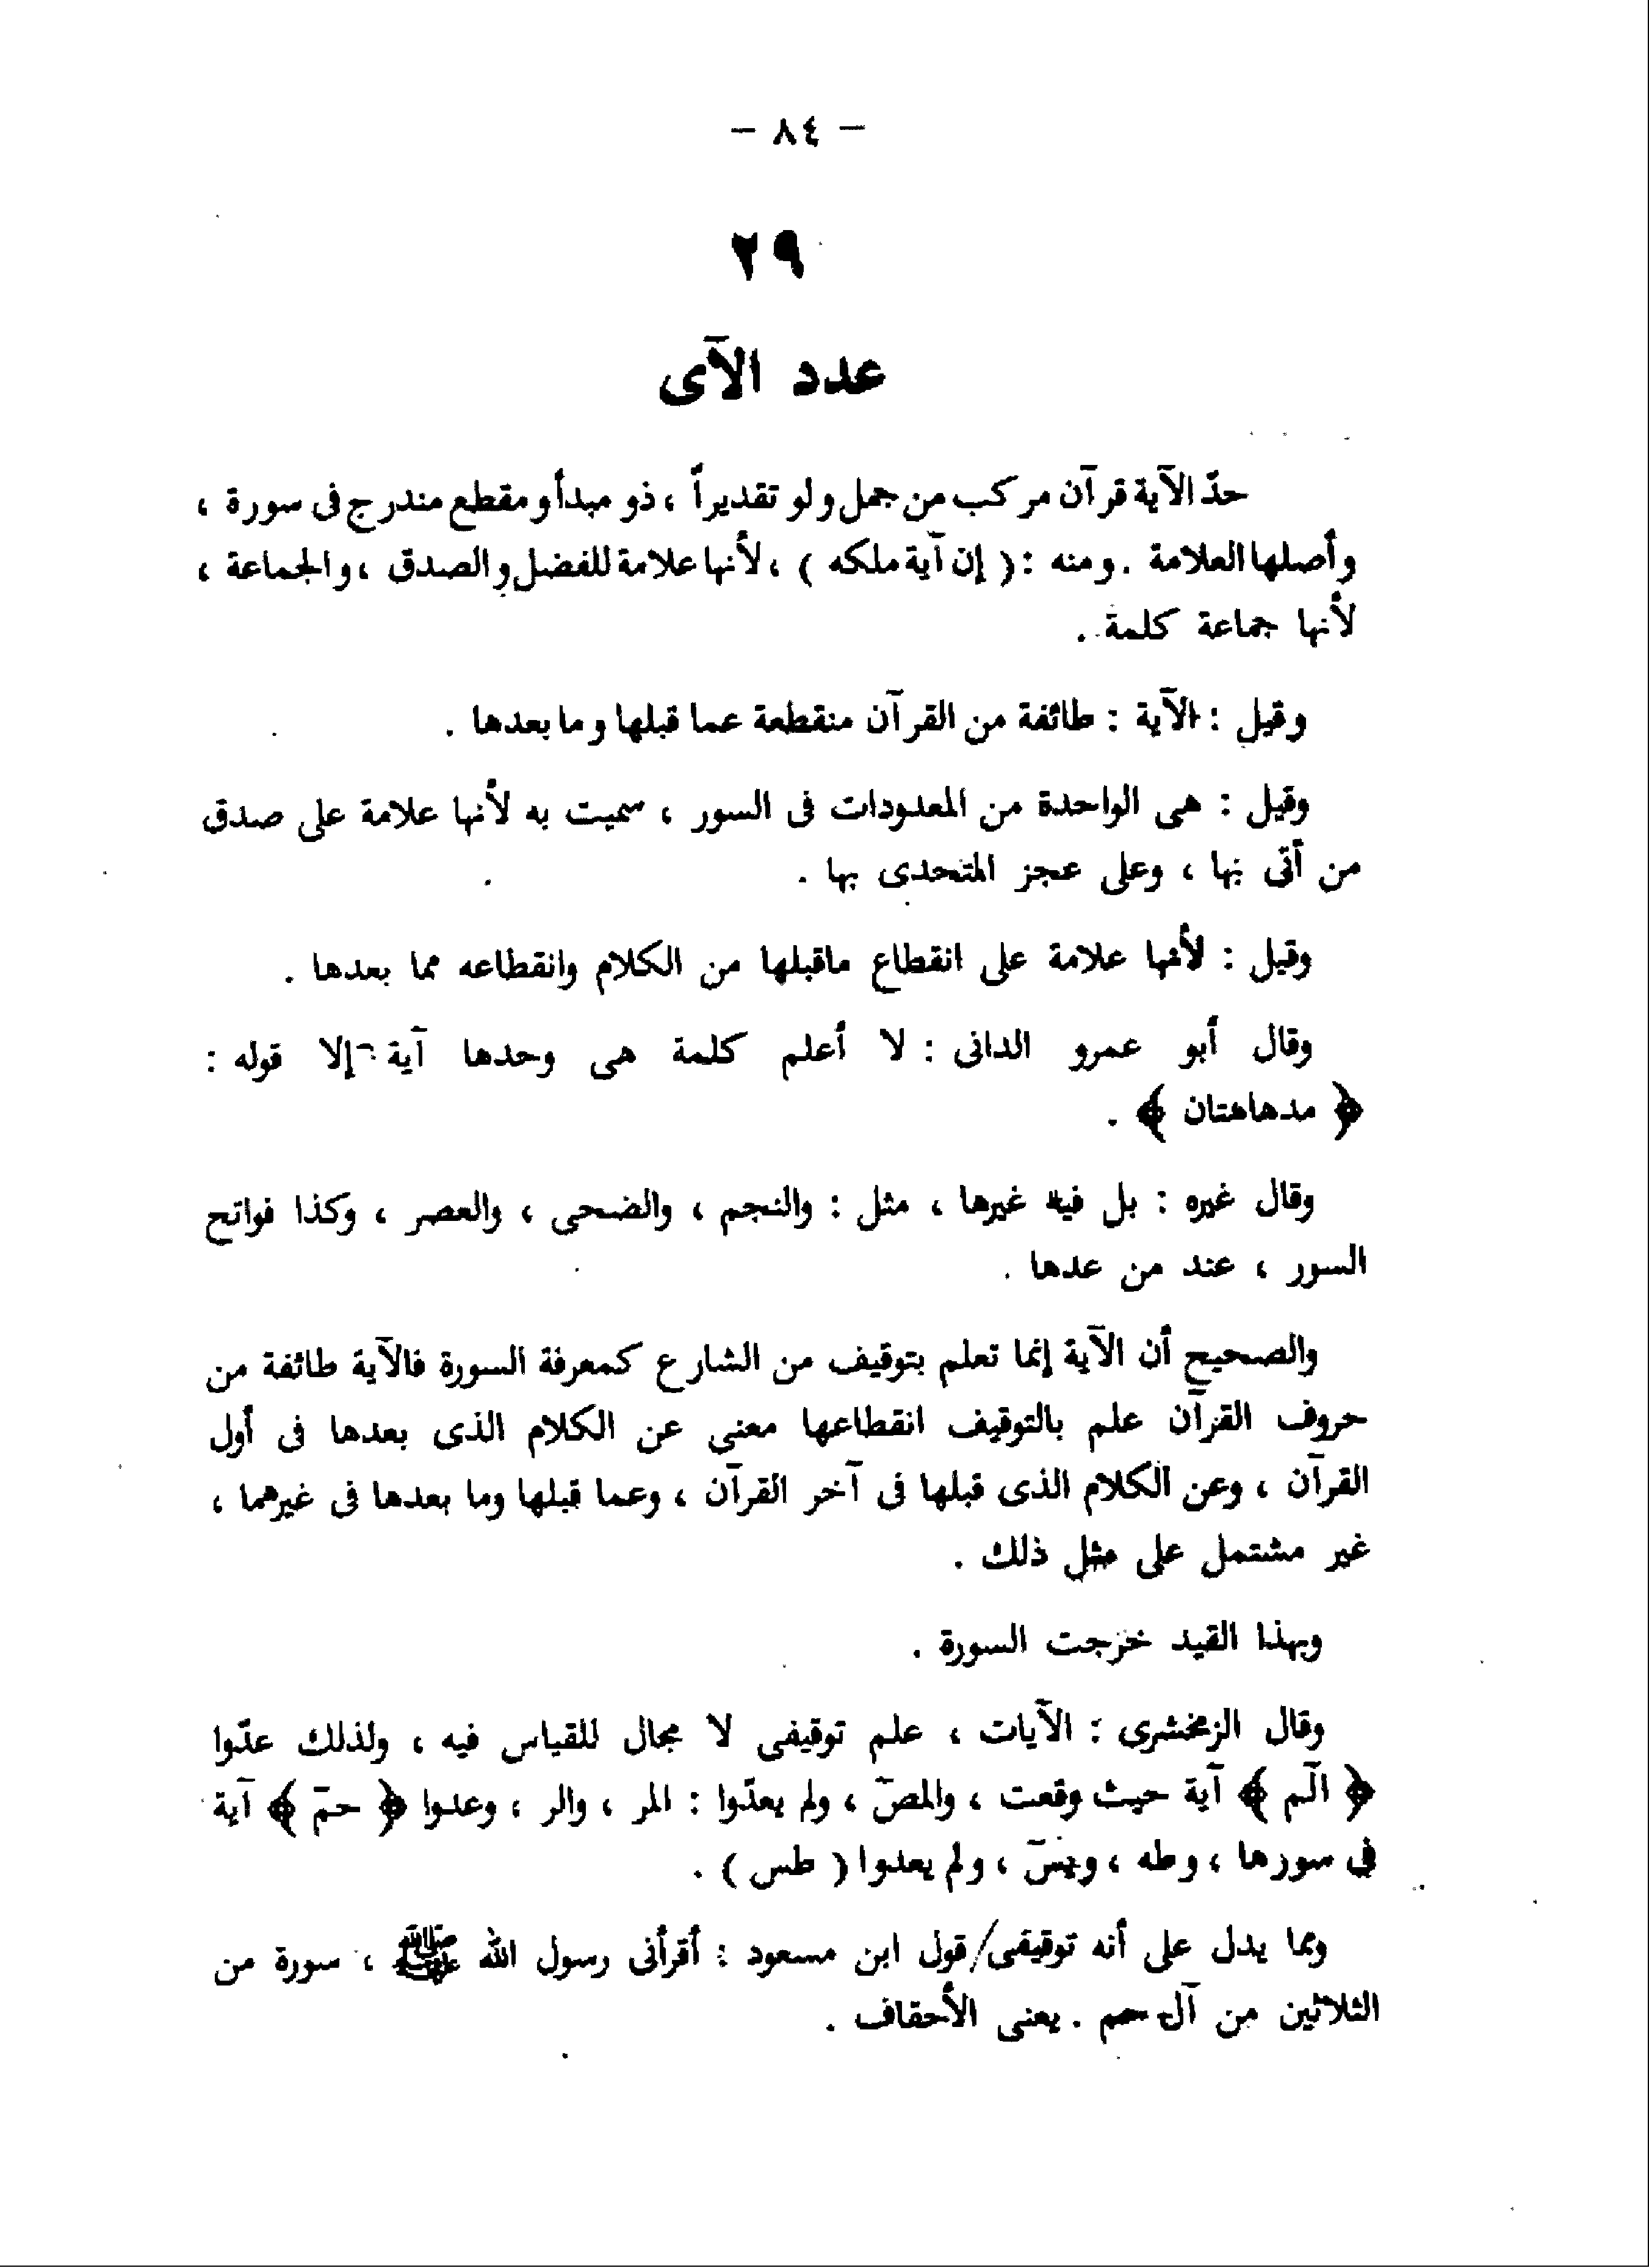 – ٨٤ –
٢٩
عدد الآى
حدّ الآية قرآن مركب من جمل ولو تقديراً ، ذو مبدأ ومقطع مندرج فى سورة ،
وأصلها العلامة . ومنه : ( إن آية ملكه ) ، لأنها علامة للفضل والصدق ، والجماعة ،
لأنها جماعة كلمة .
وقيل : الآية : طائفة من القرآن منقطعة عما قبلها وما بعدها .
وقيل : هى الواحدة من المعدودات فى السور ، سميت به لأنها علامة على صدق
من أتى بها ، وعلى عجز المتحدى بها .
وقيل : لأنها علامة على انقطاع ماقبلها من الكلام وانقطاعه مما بعدها .
وقال أبو عمرو الدانى : لا أعلم كلمة هى وحدها آية إلا قوله :
﴿ مدهامتان ﴾ .
وقال غيره : بل فيه غيرها ، مثل : والنجم ، والضحى ، والعصر ، وكذا فواتح
السور ، عند من عدها .
والصحيح أن الآية إنما تعلم بتوقيف من الشارع كمعرفة السورة فالآية طائفة من
حروف القرآن علم بالتوقيف انقطاعها معنى عن الكلام الذى بعدها فى أول
القرآن ، وعن الكلام الذى قبلها فى آخر القرآن ، وعما قبلها وما بعدها فى غيرهما ،
غير مشتمل على مثل ذلك .
وبهذا القيد خرجت السورة .
وقال الزمخشرى : الآيات ، علم توقيفى لا مجال للقياس فيه ، ولذلك عدّوا
﴿ الٓم ﴾ آية حيث وقعت ، والمصٓ ، ولم يعدّوا : المر ، والر ، وعدوا ﴿ حمٓ ﴾ آية
فى سورها ، وطه ، ويسٓ ، ولم يعدوا ( طس ) .
ومما يدل على أنه توقيفى/ قول ابن مسعود : أقرأنى رسول الله ﷺ ، سورة من
الثلاثين من آل حم . يعنى الأحقاف .